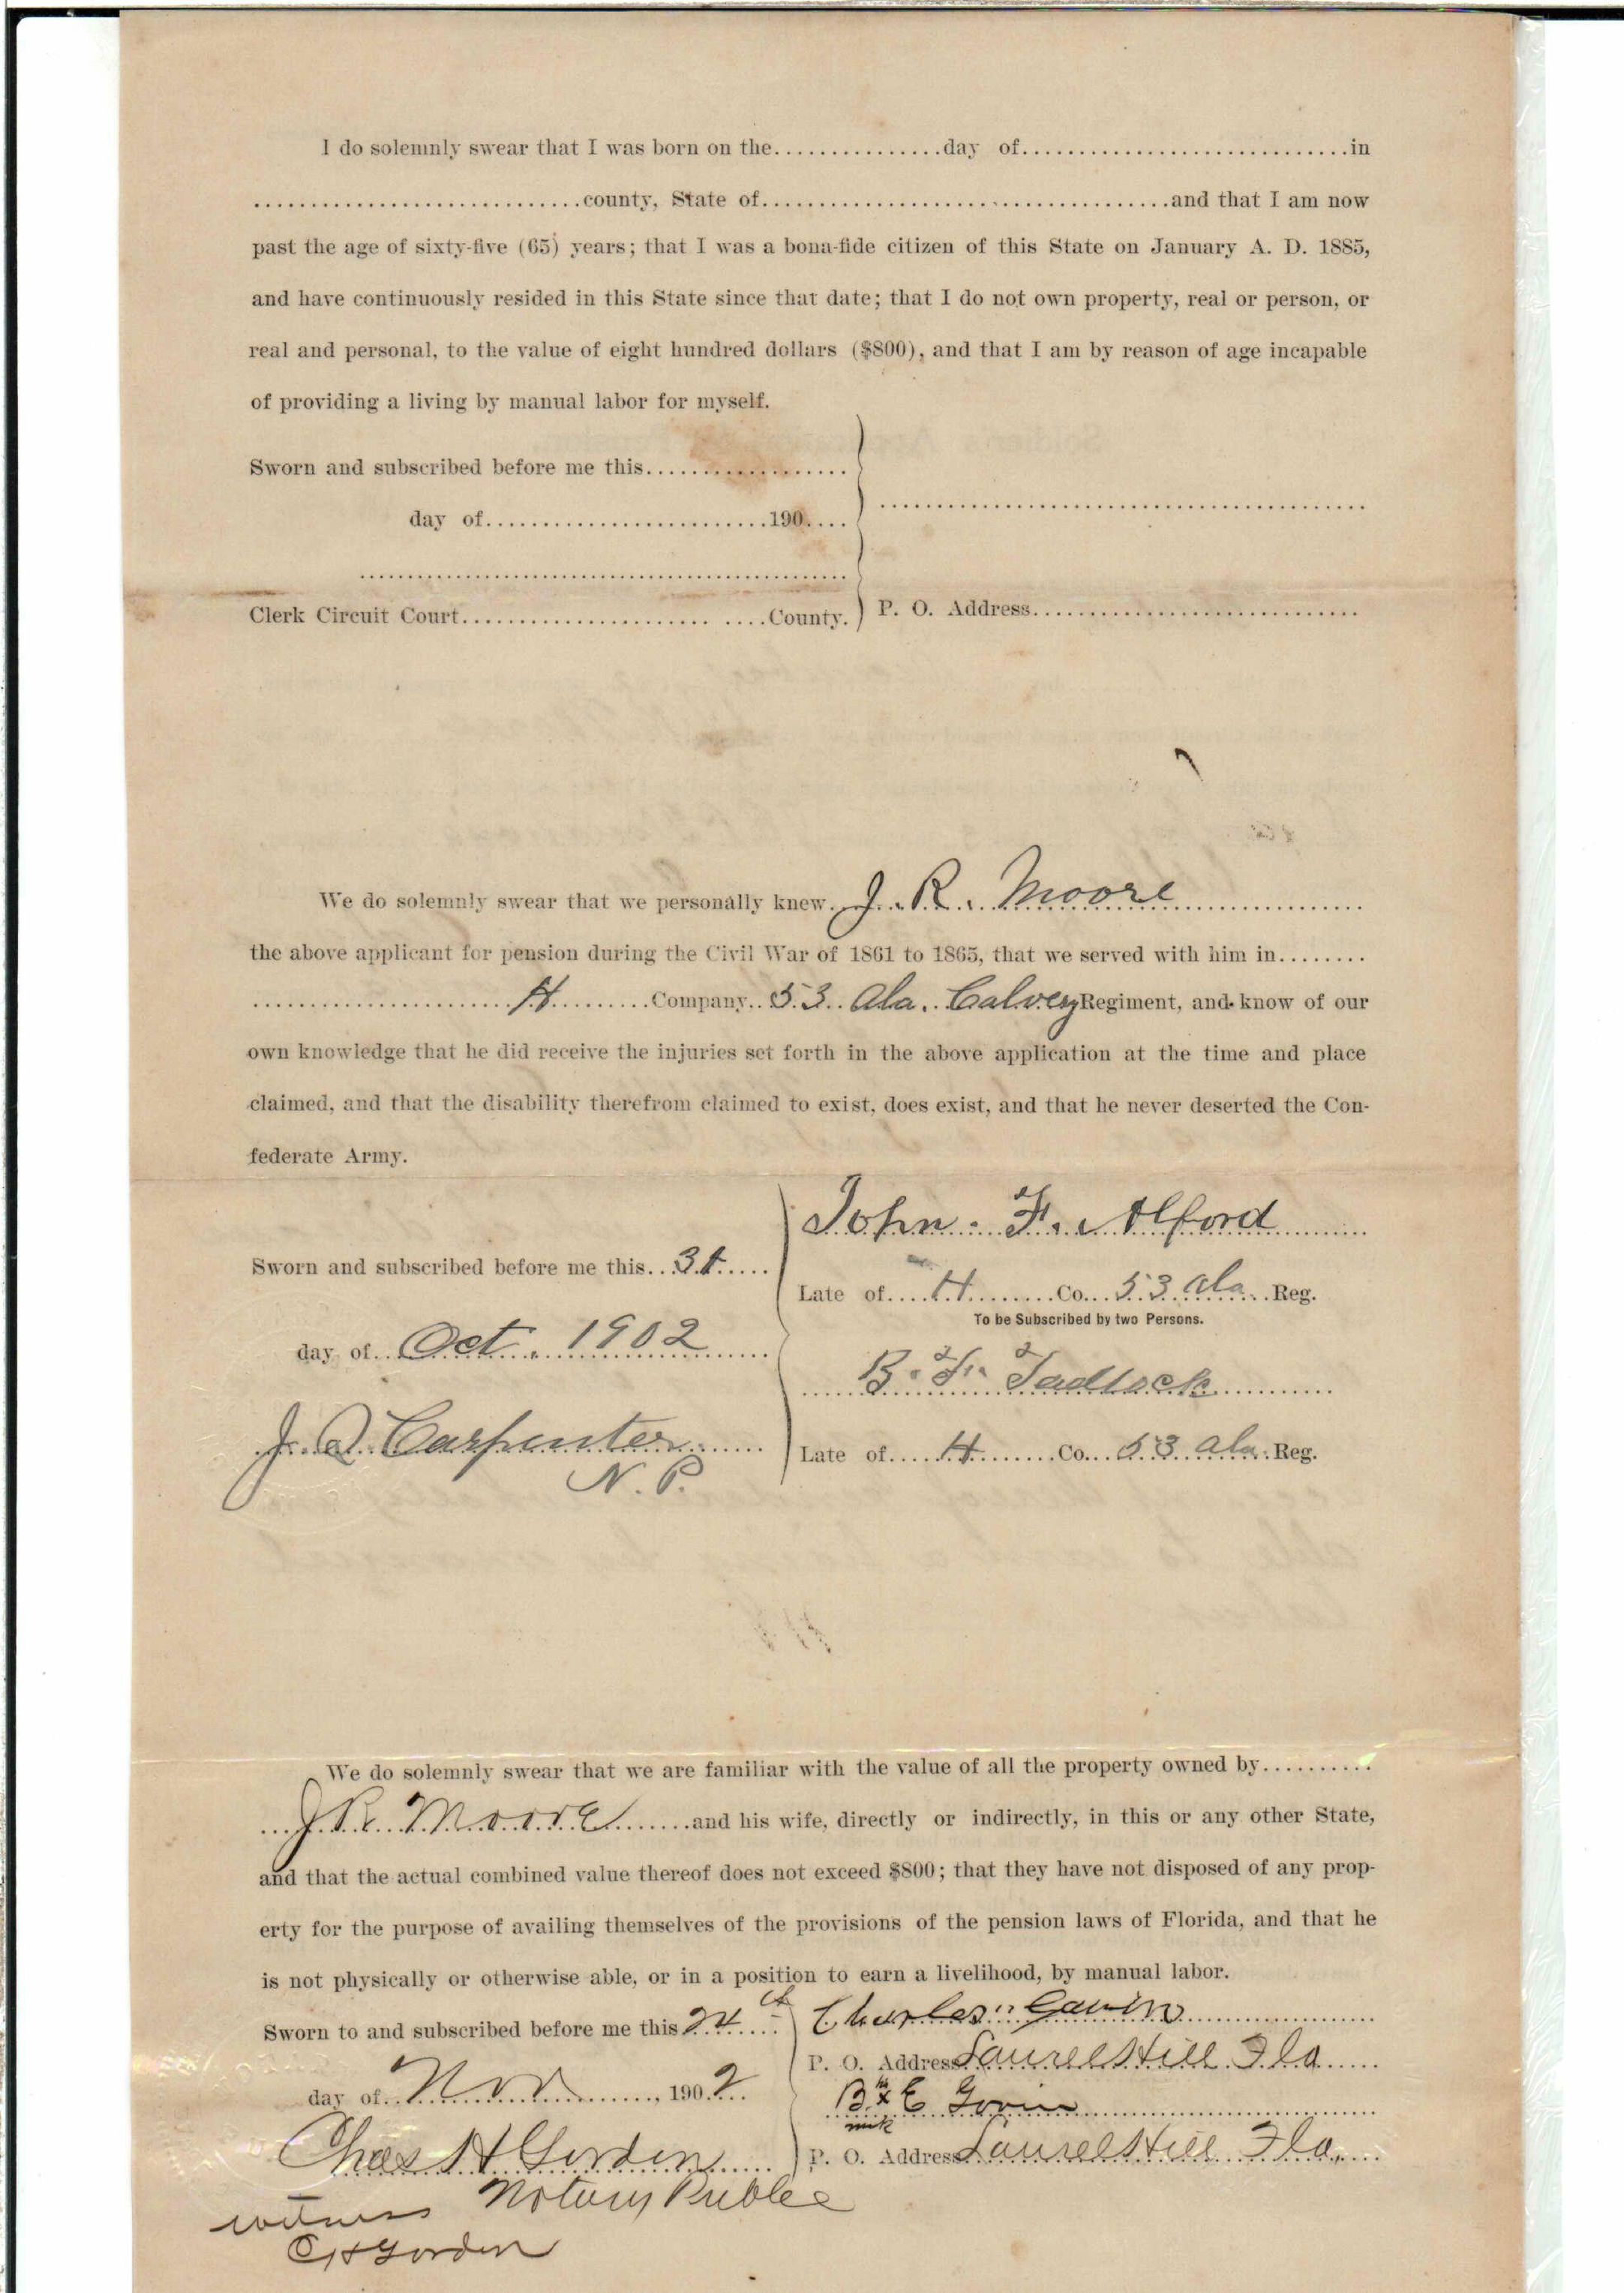 I do solemnly swear that I was born on the................day of..............................in
..............................county, State of......................................and that I am now
past the age of sixty-five (65) years; that I was a bona-fide citizen of this State on January A. D. 1885,
and have continuously resided in this State since that date; that I do not own property, real or person, or
real and personal, to the value of eight hundred dollars ($800), and that I am by reason of age incapable
of providing a living by manual labor for myself.
Sworn and subscribed before me this...................
day of..........................190....
Clerk Circuit Court...........................County.
P. O. Address..............................
We do solemnly swear that we personally knew J. R. Moore
the above applicant for pension during the Civil War of 1861 to 1865, that we served with him in........
H Company 53 Ala. Calvery Regiment, and know of our
own knowledge that he did receive the injuries set forth in the above application at the time and place
claimed, and that the disability therefrom claimed to exist, does exist, and that he never deserted the Con-
federate Army.
John. F. Alford
Sworn and subscribed before me this
Late of H Co. 53 Ala Reg.
To be Subscribed by two Persons.
day of Oct. 1902
B. F. Tadlock
J. Q. Carpenter
Late of H Co. 53 Ala. Reg.
N. P.
We do solemnly swear that we are familiar with the value of all the property owned by..........
J. R. Moore and his wife, directly or indirectly, in this or any other State,
and that the actual combined value thereof does not exceed $800; that they have not disposed of any prop-
erty for the purpose of availing themselves of the provisions of the pension laws of Florida, and that he
is not physically or otherwise able, or in a position to earn a livelihood, by manual labor.
Sworn to and subscribed before me this 24th
Charles
P. O. Address Laurel Hill Fla
day of Nov, 1902
B x E
mk
Chas H Gordon
P. O. Address Laurel Hill Fla.
Notary Public
witness
C H Gordon